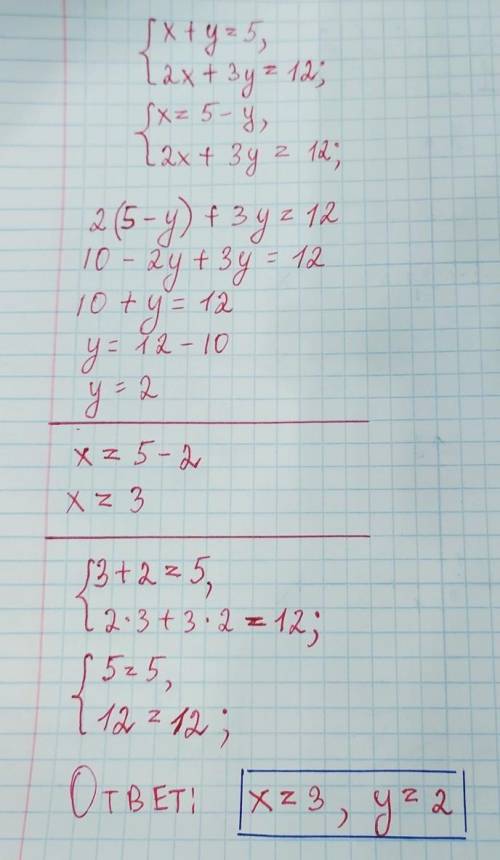 {x + y = 5,
2x + 3y = 12;
{x = 5 - y,
2x + 3y = 12;
2(5 - y) + 3y = 12
10 - 2y + 3y = 12
10 + y = 12
y = 12 - 10
y = 2
x = 5 - 2
x = 3
{3 + 2 = 5,
2·3 + 3·2 = 12;
{5 = 5,
12 = 12;
ОТВЕТ: x = 3, y = 2